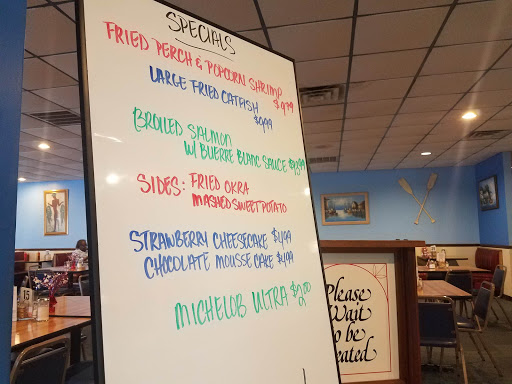 SPECIALS
FRIED PERCH & POPCORN SHRIMP
$9.99
LARGE FRIED CATFISH
$9.99
BROILED SALMON
W/ BUERRE BLANC SAUCE $13.99
SIDES: FRIED OKRA
MASHED SWEET POTATO
STRAWBERRY CHEESECAKE $4.99
CHOCOLATE MOUSSE CAKE $4.99
MICHELOB ULTRA $2.00
Please
Wait
to be
Seated